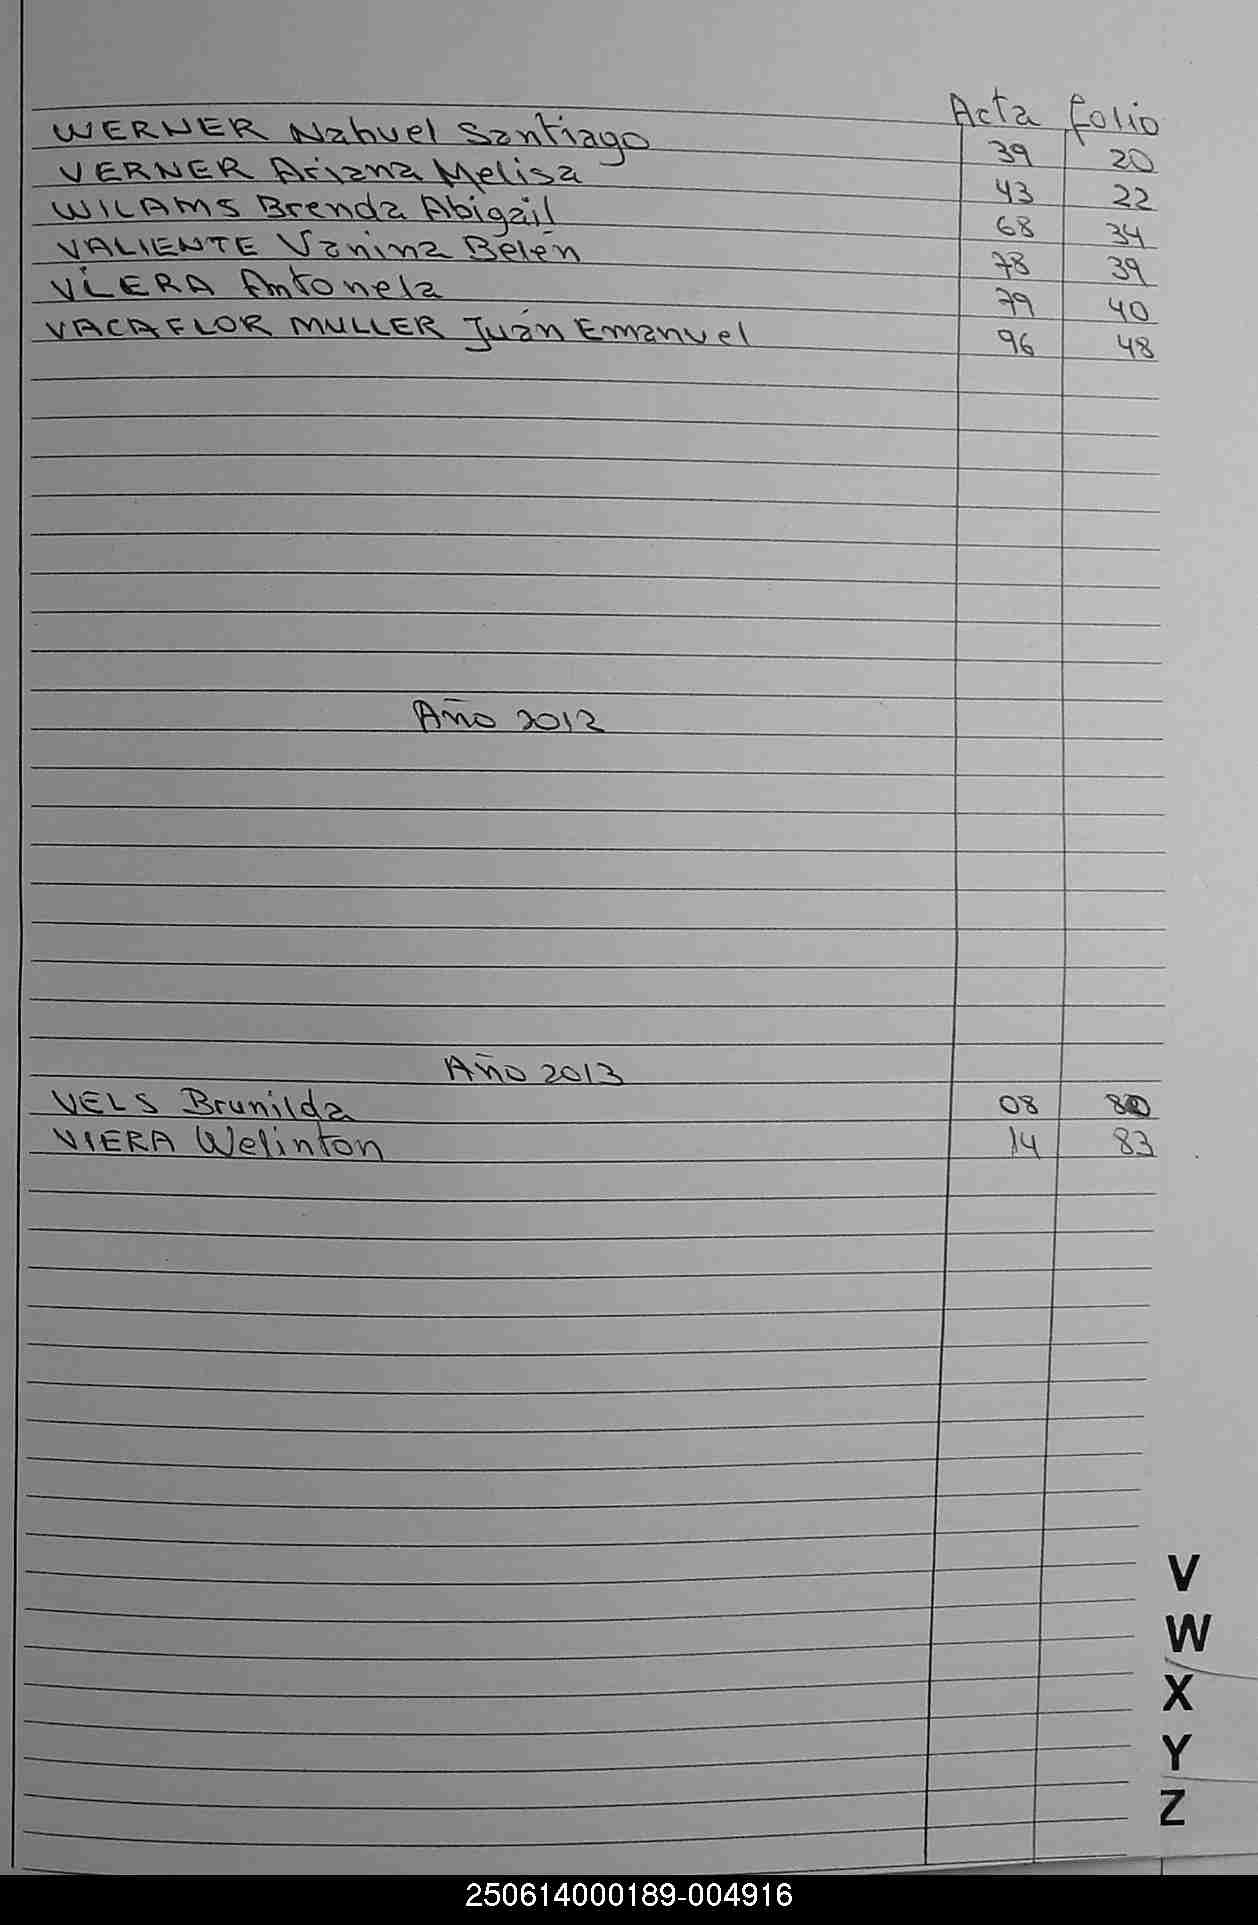 Acta folio
WERNER Nahuel Santiago 39 20
VERNER Ariana Melisa 43 22
WILAMS Brenda Abigail 68 34
VALIENTE Vanina Belén 78 39
VIERA Antonela 79 40
VACAFLOR MULLER Juán Emanuel 96 48
Año 2012
Año 2013
VELS Brunilda 08 80
VIERA Welinton 14 83
V
W
X
Y
Z
250614000189-004916